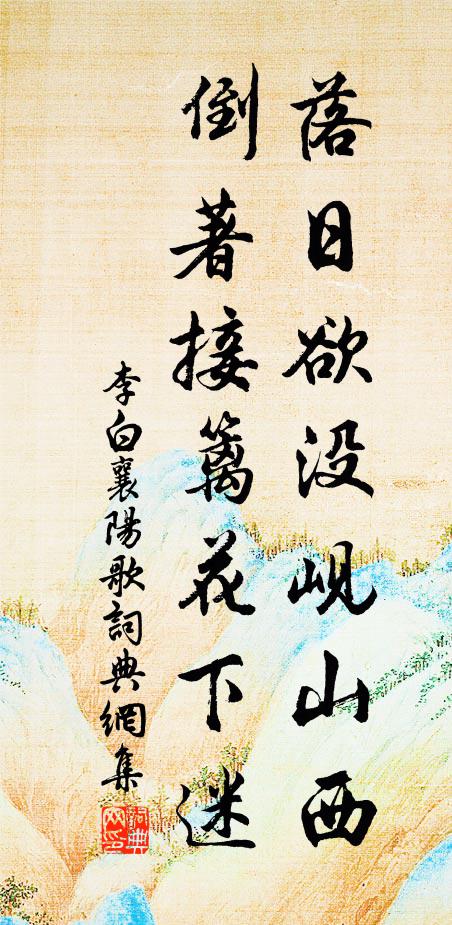 落日欲没岘山西
倒著接篱花下迷
李白襄陽歌詞典網集